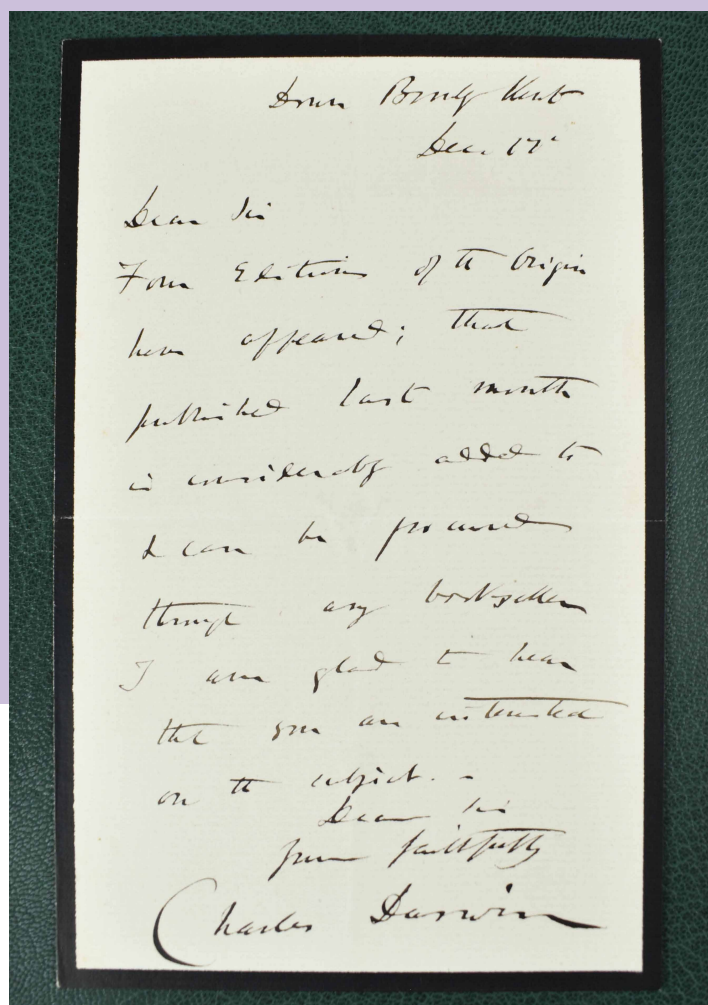 Down Bromley Kent
Dec. 17th
Dear Sir
Four Editions of the Origin
have appeared; that
published last month
is considerably added to
& can be procured
through any bookseller
I am glad to hear
that you are interested
on the subject. –
Dear Sir
yours faithfully
Charles Darwin